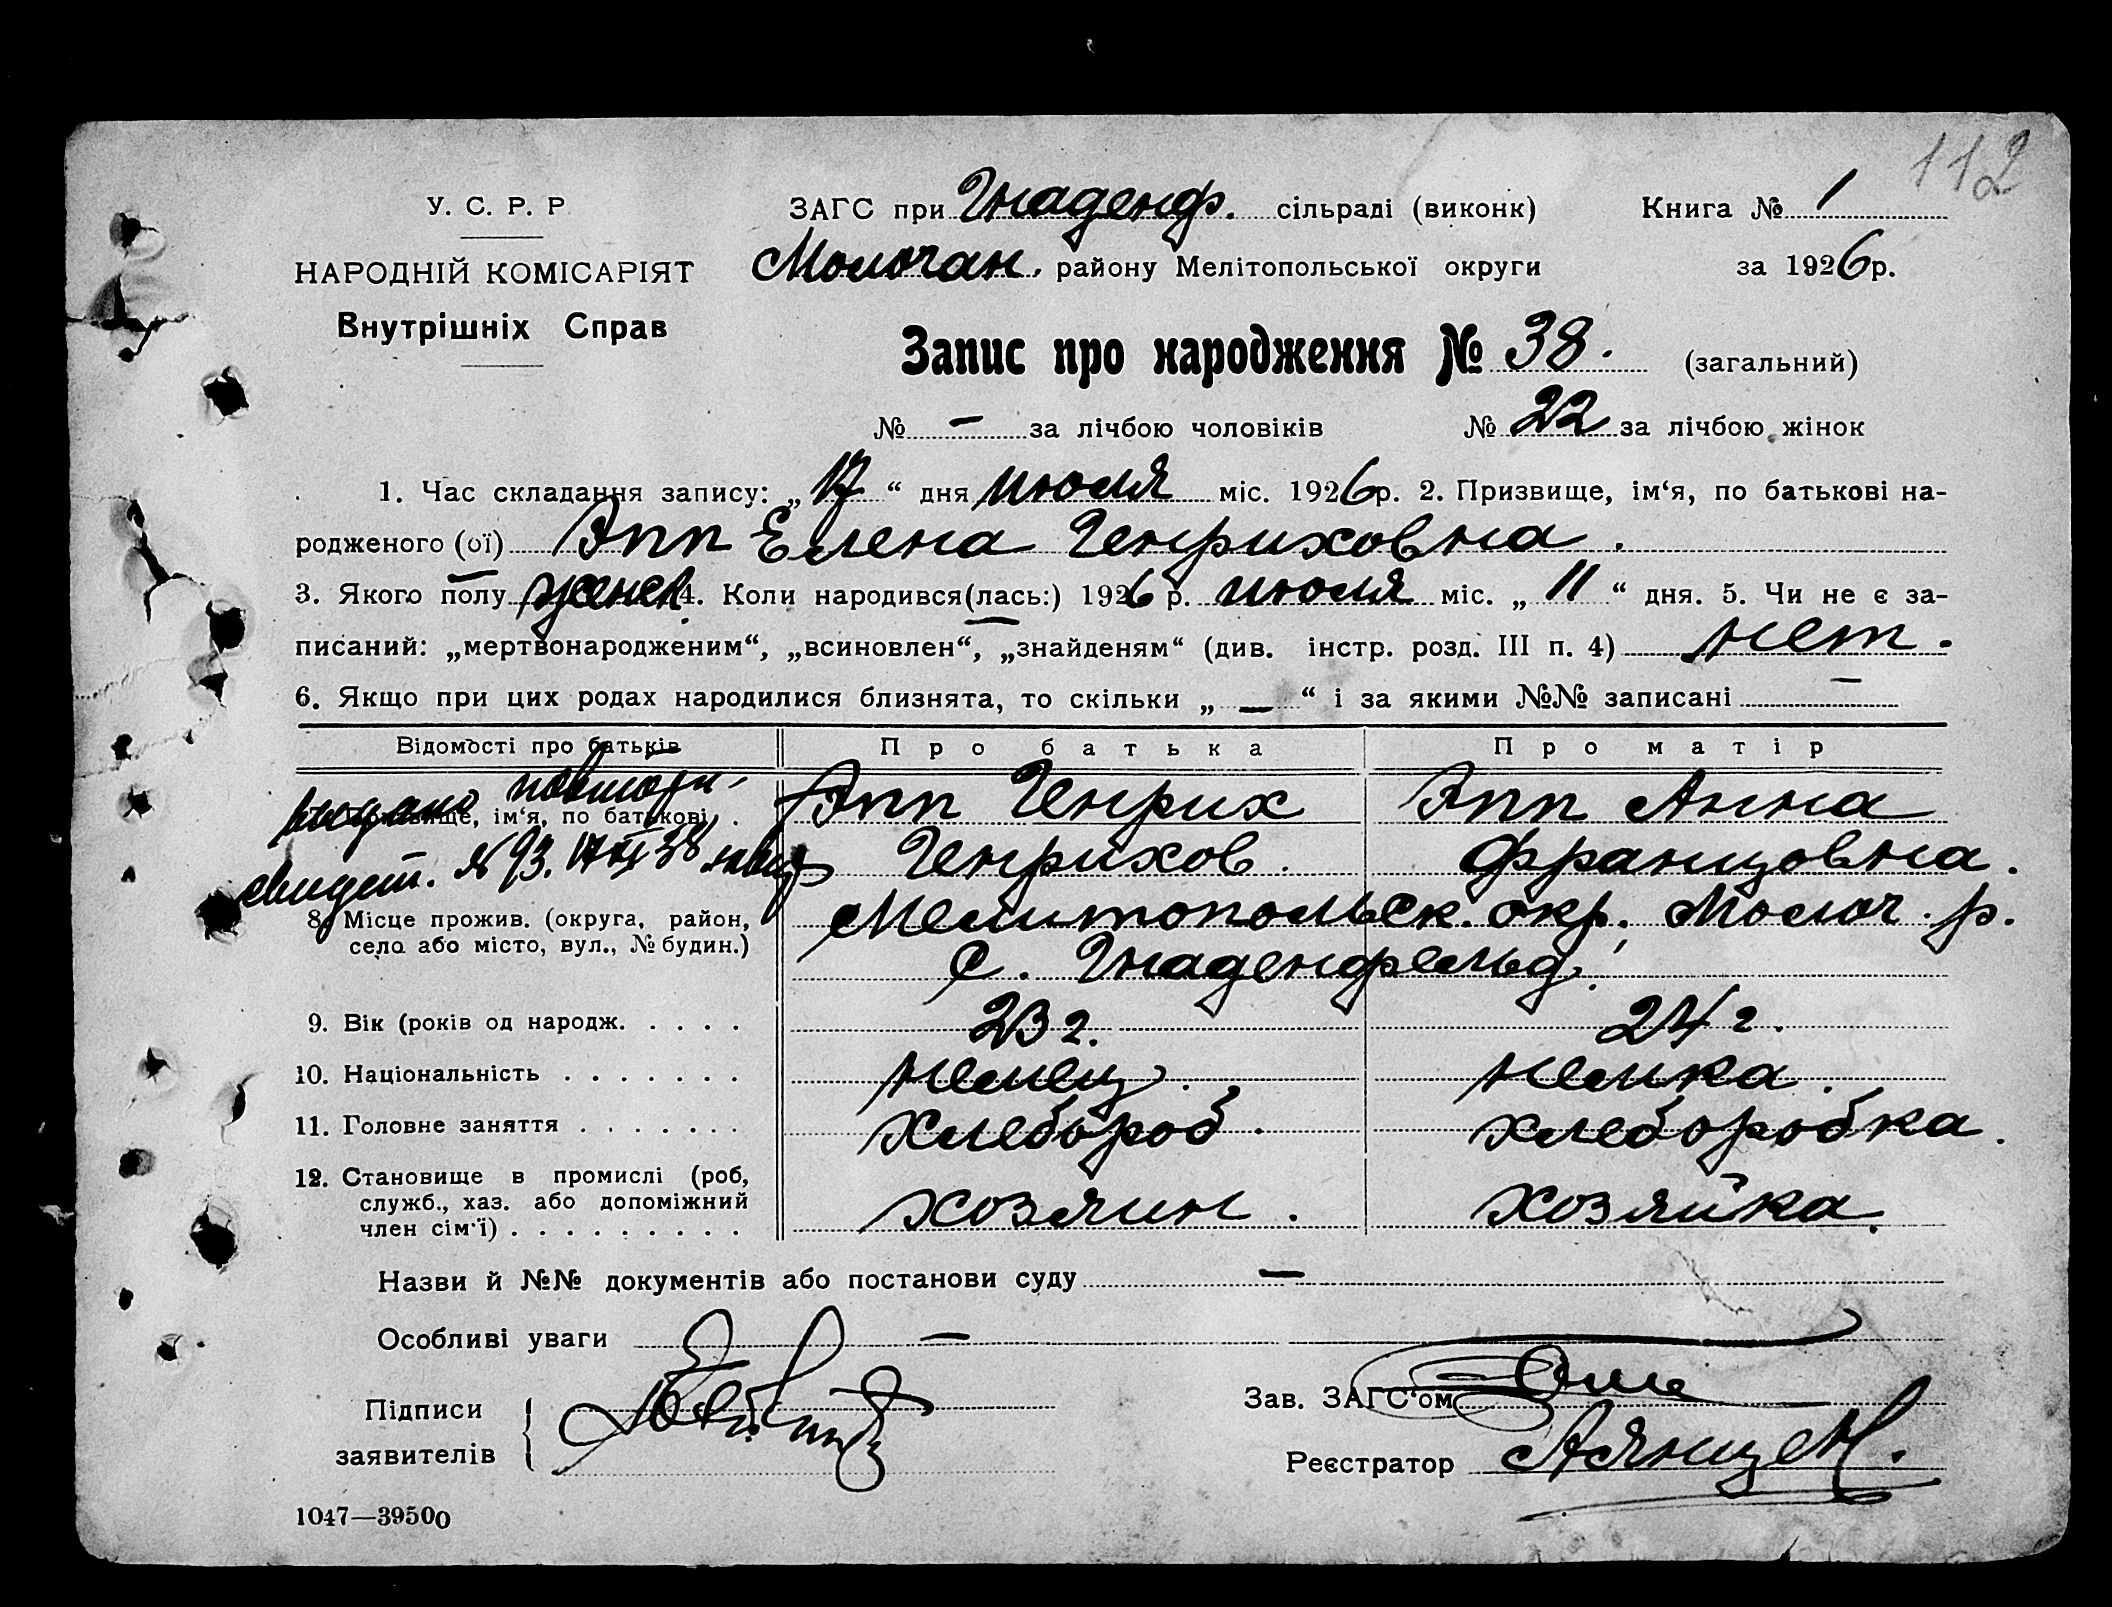 112
У. С. Р. Р
НАРОДНІЙ КОМІСАРІЯТ
Внутрішніх Справ
ЗАГС при Гнаденф. сільраді (виконк)
Молочан. району Мелітопольської округи
Книга № 1
за 1926 р.
Запис про народження № 38. (загальний)
№ – за лічбою чоловіків № 22 за лічбою жінок
1. Час складання запису: „17“ дня июля міс. 1926 р. 2. Призвище, ім‘я, по батькові на-
родженого (ої) Эпп Елена Генриховна.
3. Якого полу женск. 4. Коли народився(лась:) 1926 р. июля міс. „11“ дня. 5. Чи не є за-
писаний: „мертвонародженим“, „всиновлен“, „знайденям“ (див. інстр. розд. III п. 4) нет.
6. Якщо при цих родах народилися близнята, то скільки „–“ і за якими №№ записані –
Відомості про батьків Про батька Про матір
выдано повторн.
ім‘я, по батькові . Эпп Генрих Эпп Анна
свидет. № 93. 17 38
Генрихов. Францовна.
8. Місце прожив. (округа, район, Мелитопольск. окр. Молоч. р.
село або місто, вул., № будин.) с. Гнаденфельд.
9. Вік (років од народж. . . . . 23 г. 24 г.
10. Національність . . . . . . . немец. немка.
11. Головне заняття . . . . . . . хлебороб. хлеборобка.
12. Становище в промислі (роб,
служб., хаз. або допоміжний хозяин. хозяйка.
член сім‘ї) . . . . . . . . .
Назви й №№ документів або постанови суду –
Особливі уваги –
Підписи
заявителів
Зав. ЗАГС‘ом
Реєстратор
1047—39500